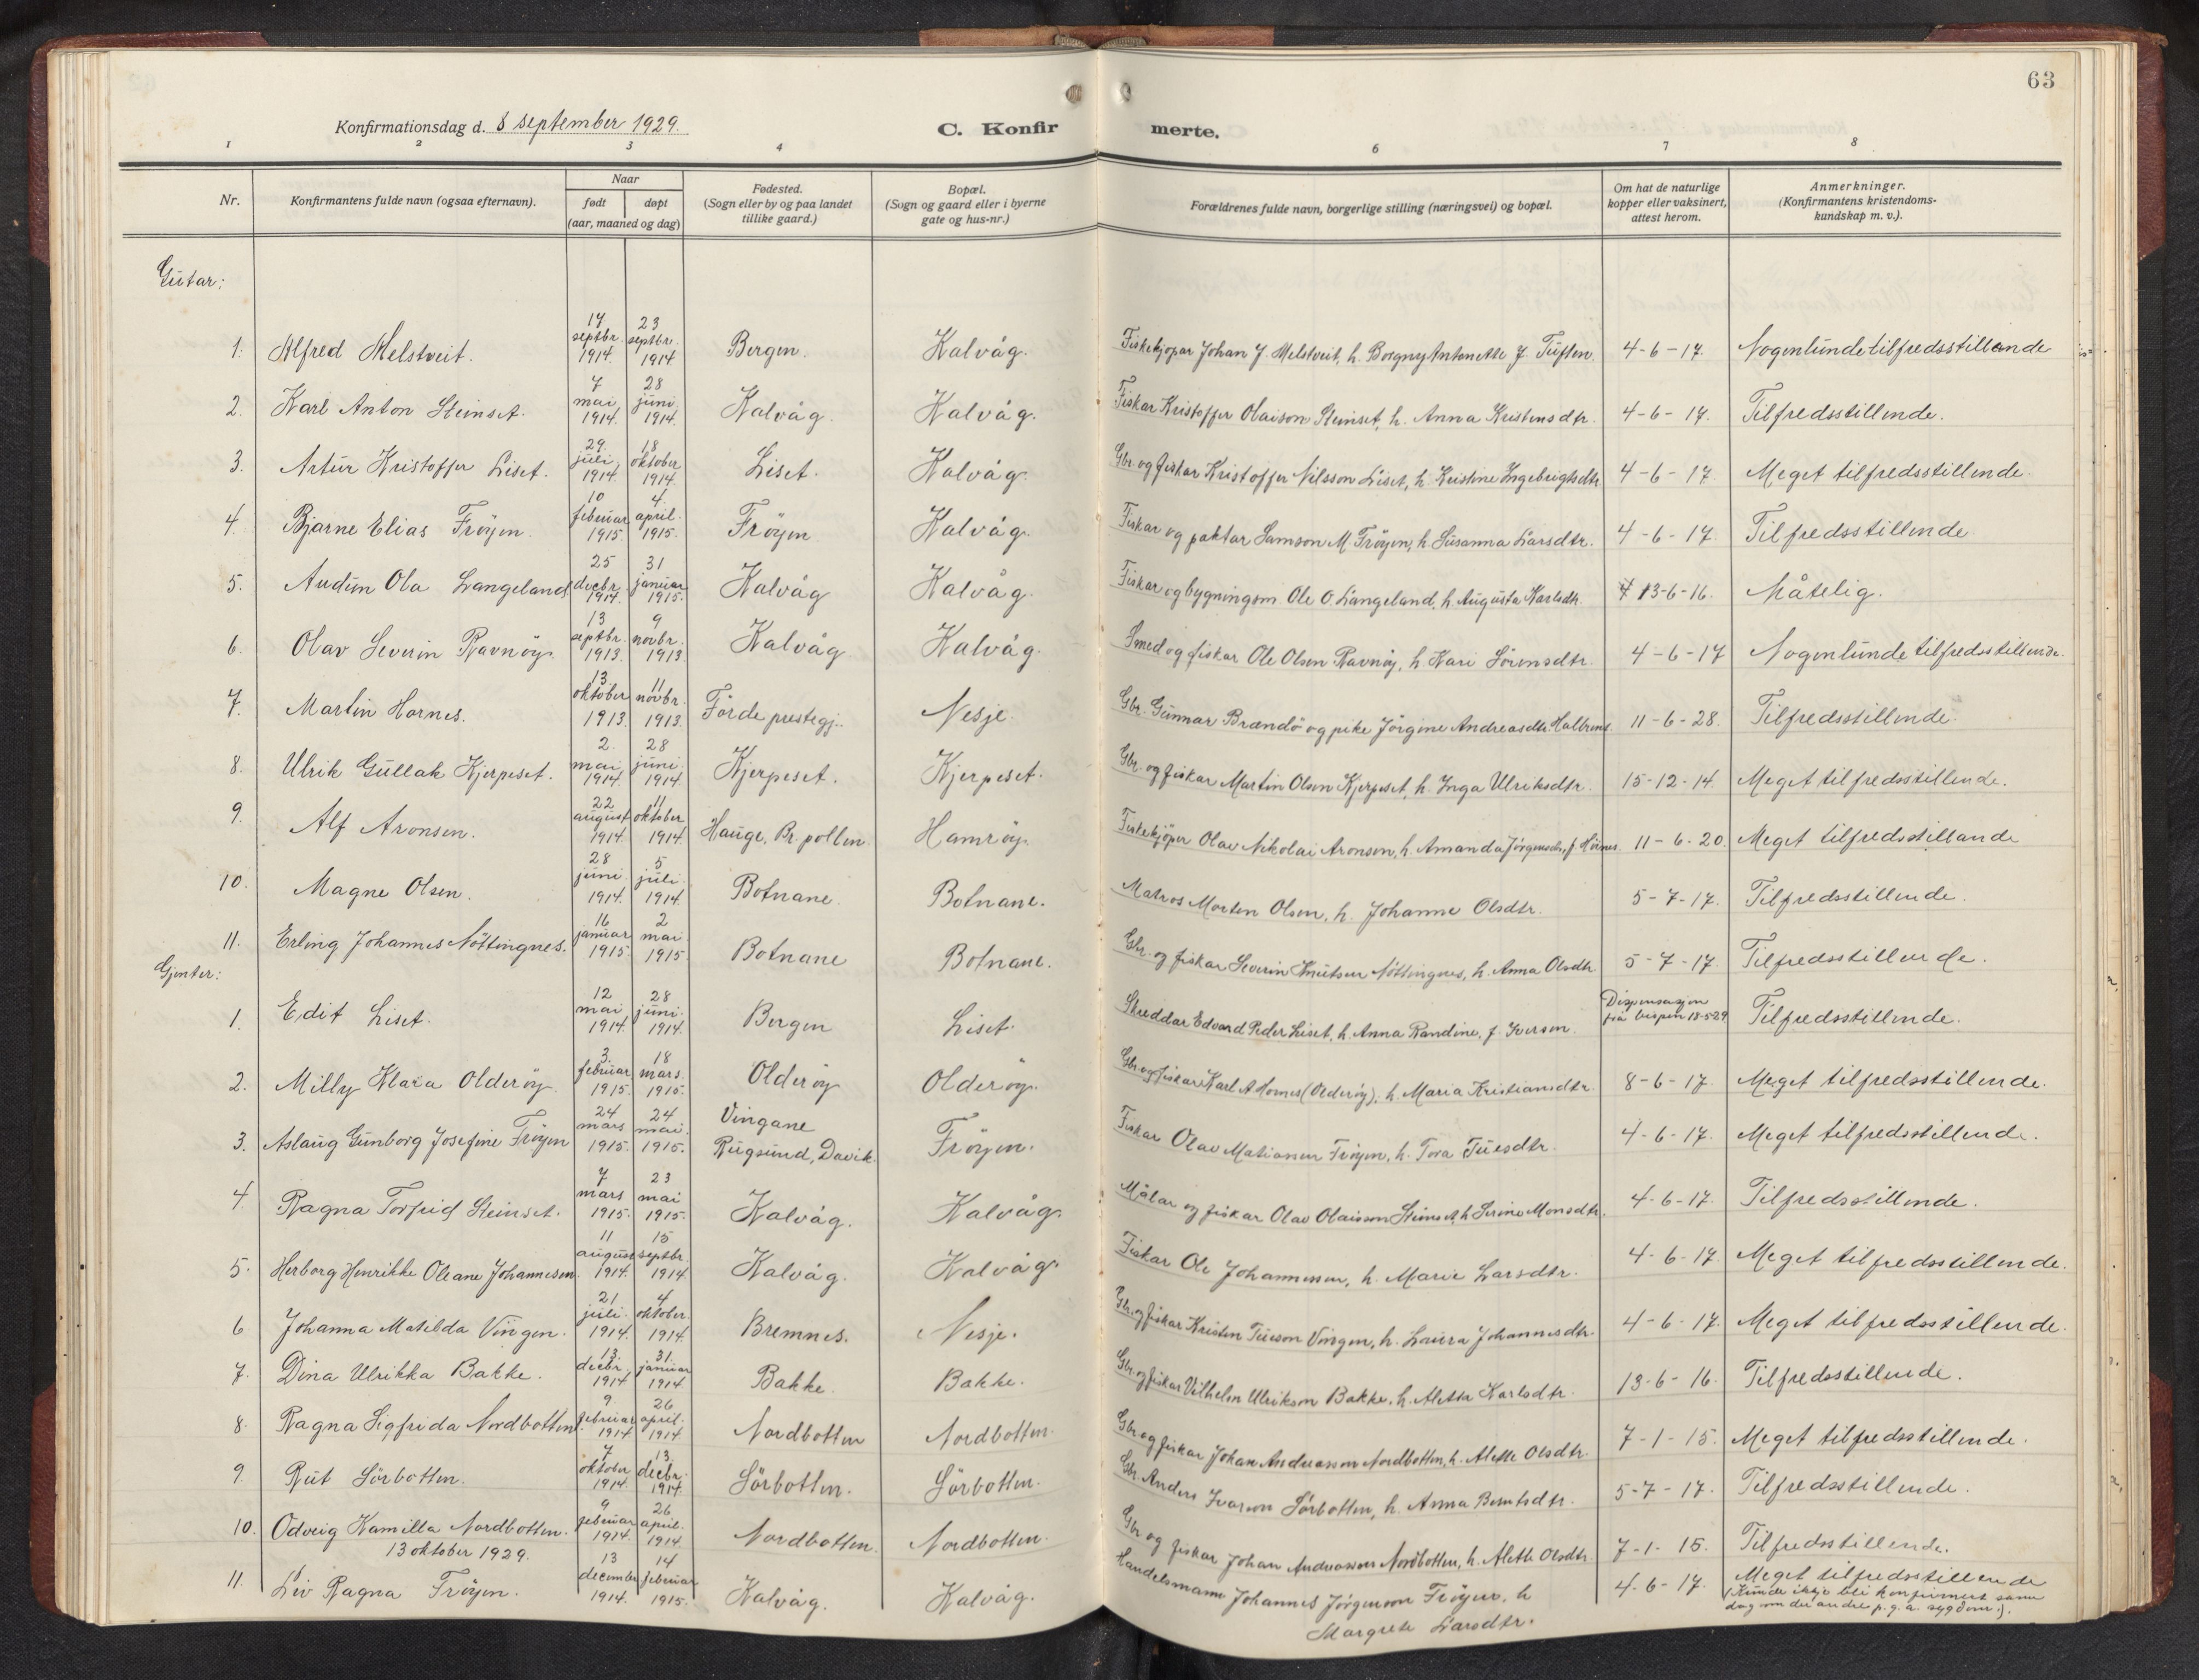 63
Konfirmationsdag d. 8 september 1929.
C. Konfirmerte.
1 2 3 4 6 7 8
Nr.
Konfirmantens fulde navn (ogsaa efternavn).
Naar
født døpt
(aar, maaned og dag)
Fødested.
(Sogn eller by og paa landet
tillike gaard.)
Bopæl.
(Sogn og gaard eller i byerne
gate og hus-nr.)
Forældrenes fulde navn, borgerlige stilling (næringsvei) og bopæl.
Om hat de naturlige
kopper eller vaksinert,
attest herom.
Anmerkninger.
(Konfirmantens kristendoms-
kundskap m. v.).
Gutar:
1. Alfred Melstveit. 14 septbr. 1914. 23 septbr. 1914. Bergen. Kalvåg. Fiskekjøpar Johan J. Melstveit, h. Borgny Antonette f. Tuften. 4-6-17. Nogenlunde tilfredsstillande
2. Karl Anton Steinset. 7 mai 1914. 28 juni 1914. Kalvåg. Kalvåg. Fiskar Kristoffer Olaison Steinset, h. Anna Kristensdtr. 4-6-17. Tilfredsstillende.
3. Artur Kristoffer Liset. 29. juli 1914. 18 oktober 1914. Liset. Kalvåg. Gbr. og fiskar Kristoffer Nilsson Liset, h. Kristine Ingebrigtsdtr. 4-6-17. Meget tilfredsstillende.
4. Bjarne Elias Fröyen. 10 februar 1915. 4. april. 1915. Fröyen Kalvåg. Fiskar og paktar Samson M. Fröyen, h. Susanna Larsdtr. 4-6-17. Tilfredsstillende.
5. Audun Ola Langeland 25 decbr. 1914. 31 januar 1915. Kalvåg Kalvåg. Fiskar og bygningsm. Ole O. Langeland, h. Augusta Karlsdtr. 13-6-16. Måtelig.
6. Olav Severin Ravnöy. 13 septbr. 1913. 9 novbr. 1913. Kalvåg Kalvåg. Smed og fiskar Ole Olsen Ravnöy, h. Kari Sörensdtr. 4-6-17 Nogenlunde tilfredsstillende.
7. Martin Hornes. 13 oktober 1913. 11 novbr. 1913. Förde prestegj. Nesje. Gbr. Gunnar Brændö og pike Jörgine Andreasdtr. 11-6-28. Tilfredsstillende.
8. Ulrik Gullak Kjerpeset. 2. mai 1914. 28 juni. 1914. Kjerpeset. Kjerpeset. Gbr. og fiskar Martin Olsen Kjerpeset, h. Inga Ulriksdtr. 15-12-14. Meget tilfredsstillende.
9. Alf Aronsen. 22 august 1914. 11 oktober 1914. Hauge, Br. pollen. Hamröy. Fiskekjöper Olav Nikolai Aronsen, h. Amanda Jörgensdtr. 11-6-20. Meget tilfredsstillande
10. Magne Olsen. 28 juni. 1914. 5 juli. 1914. Botnane. Botnane. Matros Morten Olsen, h. Johanne Olsdtr. 5-7-17. Tilfredsstillende.
11. Erling Johannes Nöttingnes. 16 januar 1915. 2 mai 1915. Botnane Botnane. Gbr. og fiskar Severin Knutsen Nöttingnes, h. Anna Olsdtr. 5-7-17. Tilfredsstillende.
Gjenter:
1. Edit Liset. 12 mai 1914. 28 juni. 1914. Bergen Liset. Skreddar Edvard Peder Liset, h. Anna Randine, f. Iversen. Dispensasjon frå bispen 18-5-29 Tilfredsstillende.
2. Milly Klara Olderöy. 3. februar 1915. 18 mars. 1915. Olderöy Olderöy. Gbr. og fiskar Karl A. Hornes (Olderöy), h. Maria Kristiansdtr. 8-6-17. Meget tilfredsstillende.
3. Aslaug Gunborg Josefine Fröyen 24 mars 1915. 24 mai. 1915. Vingane Rugsund, Davik. Fröyen. Fiskar Olav Matiassen Fröyen, h. Tora Tuesdtr. 4-6-17. Meget tilfredsstillende.
4. Ragna Torfrid Steinset. 7 mars 1915. 23 mai 1915. Kalvåg. Kalvåg. Målar og fiskar Olav Olaisson Steinset, h. Serine Monsdtr. 4-6-17. Tilfredsstillende.
5. Herborg Henrikke Oleane Johannesen. 11 august 1914. 15 septbr. 1914 Kalvåg. Kalvåg. Fiskar Ole Johannessen, h. Marie Larsdtr. 4-6-17 Meget tilfredsstillende.
6 Johanna Matilda Vingen. 21 juli. 1914. 4 oktober. 1914. Bremnes. Nesje. Gbr. og fiskar Kristen Tueson Vingen, h. Lovisa Johannesdtr. 4-6-17. Meget tilfredsstillende.
7. Dina Ulrikka Bakke. 13. decbr. 1914 31. januar 1914 Bakke. Bakke. Gbr. og fiskar Vilhelm Ulrikson Bakke, h. Aletta Karlsdtr. 13-6-16. Tilfredsstillende.
8. Ragna Sigfrida Nordbotten. 9 februar 1914 26 april. 1914 Nordbotten Nordbotten. Gbr. og fiskar Johan Andreasson Nordbotten, h. Alette Olsdtr. 7-1-15. Meget tilfredsstillende.
9. Rut Sörbotten. 7 oktober 1914. 13. decbr. 1914. Sörbotten. Sörbotten. Gbr. Anders Ivarson Sörbotten, h. Anna Berntsdtr. 5-7-17. Tilfredsstillende.
10. Odveig Kamilla Nordbotten. 9 februar 1914. 26 april. 1914. Nordbotten. Nordbotten. Gbr. og fiskar Johan Andreasson Nordbotten, h. Alette Olsdtr. 7-1-15. Tilfredsstillende.
13 oktober 1929.
11. Liv Ragna Fröyen. 13 december 1914. 14 februar 1915. Kalvåg. Kalvåg. Handelsmann Johannes Jörgenson Fröyen, h Margrete Larsdtr. 4-6-17. Meget tilfredsstillende
(Kunde ikkje bli konfirmert same
dag som dei andre p. g. a. sygdom.).